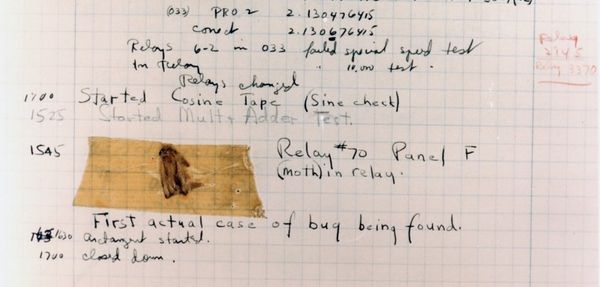 (033) PRO 2 2.130476415
conect 2.130676415
Relays 6-2 in 033 failed special speed test
In Relay " 10,000 test.
Relay
2145
Relay 3370
Relays changed
1700 Started Cosine Tape (Sine check)
1525 Started Mult+ Adder Test.
1545 Relay #70 Panel F
(moth) in relay.
First actual case of bug being found.
1630 arctangent started.
1700 closed down.